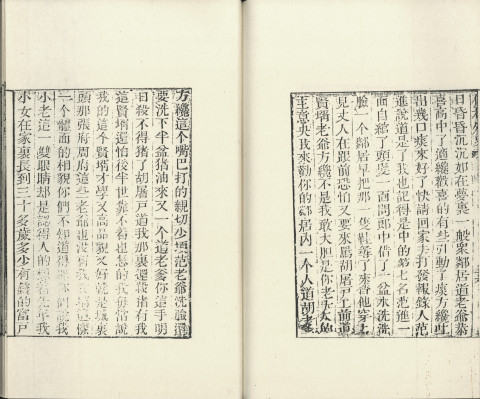 日昏昏沉沉如在夢裏一般衆鄰居道老爺恭
喜高中了適纔歡喜的有些引動了痰方纔吐
出幾口痰來好了快請回家去打發報錄人范
進說道是了我也記得是中的第七名范進一
面自綰了頭髮一面問郎中借了一盆水洗洗
臉一個鄰居早把那一隻鞋尋了來替他穿上
見丈人在跟前恐怕又要來罵胡屠戶上前道
賢壻老爺方纔不是我敢大胆是你老太太的
主意央我來勸你的鄰居內一個人道胡老爹
方纔這個嘴巴打的親切少頃范老爺洗臉還
要洗下半盆猪油來又一個道老爹你這手明
日殺不得猪了胡屠戶道我那裏還殺猪有我
這賢壻還怕後半世靠不着也怎的我每常說
我的這個賢壻才學又高品貌又好就是城裏
頭那張府周府這些老爺也沒有我女壻這樣
一個體面的相貌你們不知道得罪你們說我
小老這一雙眼睛却是認得人的想着先年我
小女在家裏長到三十多歲多少有錢的富戶